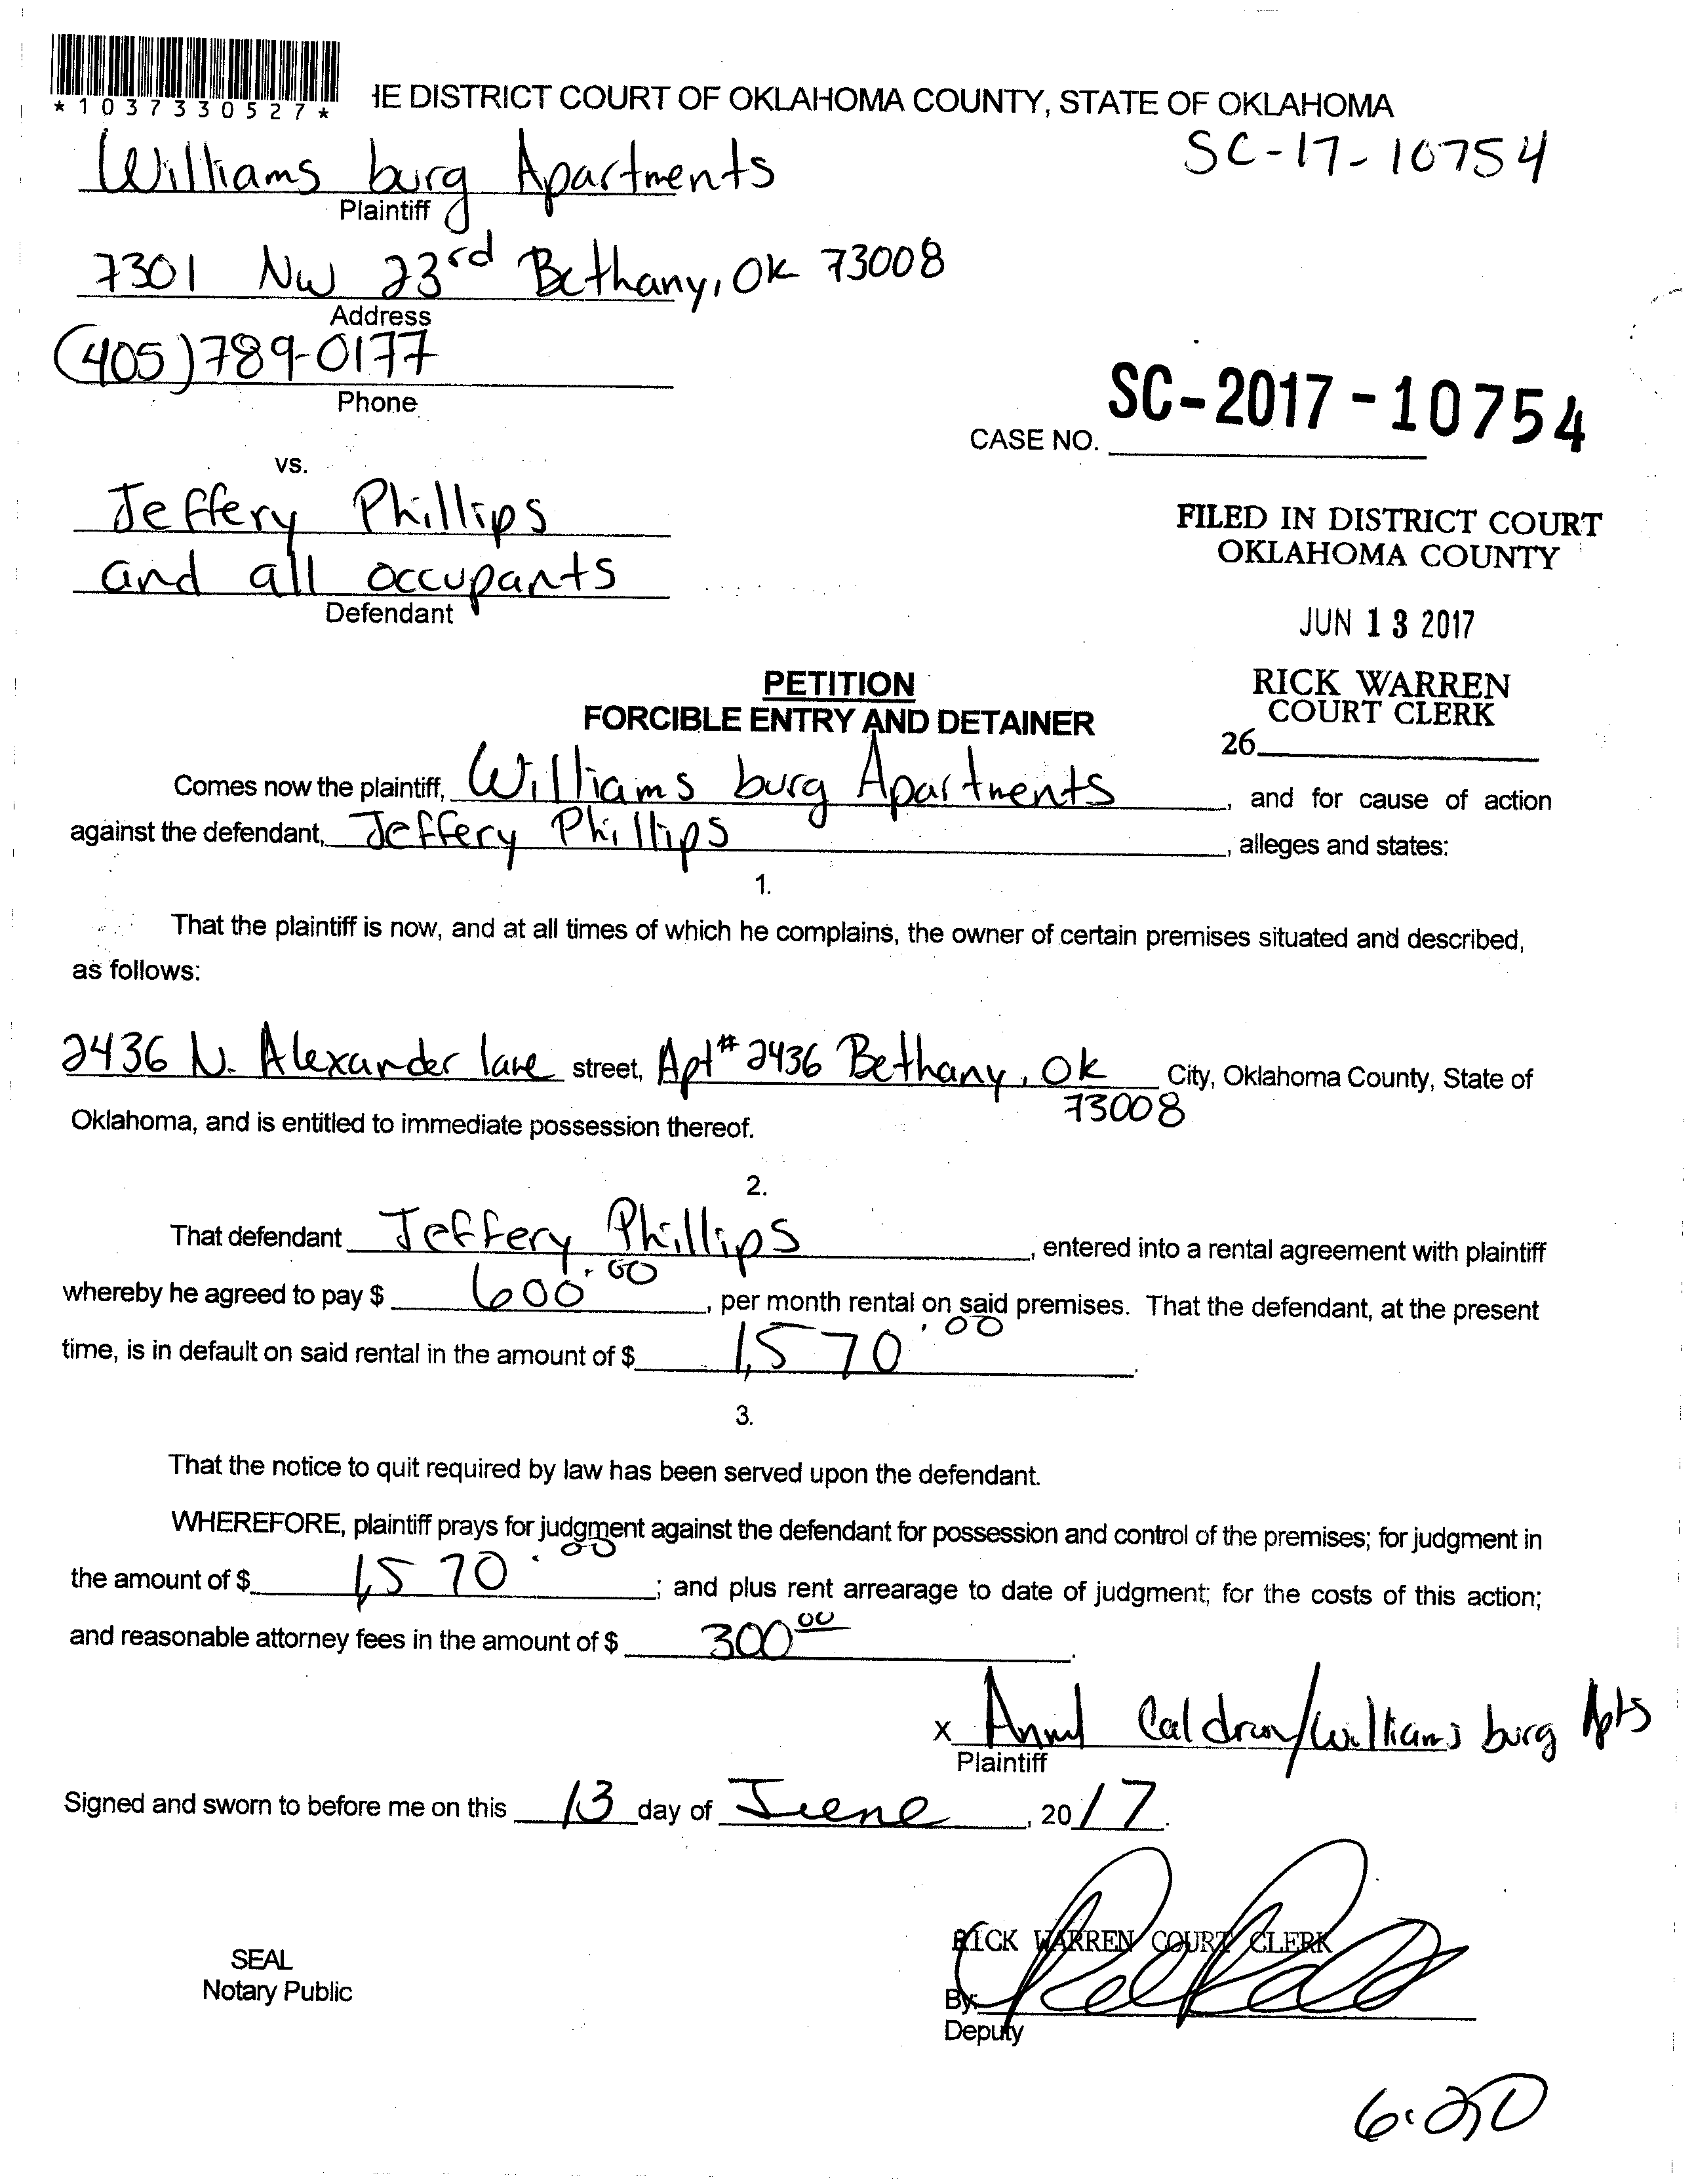 *1037330527*
IE DISTRICT COURT OF OKLAHOMA COUNTY, STATE OF OKLAHOMA
SC-17-10754
Williams burg Apartments
Plaintiff
7301 NW 23rd Bethany, OK 73008
Address
(405)789-0177
Phone
SC-2017-10754
CASE NO.
vs.
Jeffery Phillips
and all occupants
Defendant
FILED IN DISTRICT COURT
OKLAHOMA COUNTY
JUN 13 2017
RICK WARREN
COURT CLERK
26
PETITION
FORCIBLE ENTRY AND DETAINER
Comes now the plaintiff, Williams burg Apartments, and for cause of action
against the defendant, Jeffery Phillips, alleges and states:
1.
That the plaintiff is now, and at all times of which he complains, the owner of certain premises situated and described,
as follows:
2436 N. Alexander lane street, Apt# 2436 Bethany, OK City, Oklahoma County, State of
73008
Oklahoma, and is entitled to immediate possession thereof.
2.
That defendant Jeffery Phillips, entered into a rental agreement with plaintiff
whereby he agreed to pay $ 600.00, per month rental on said premises. That the defendant, at the present
time, is in default on said rental in the amount of $ 1,570.00.
3.
That the notice to quit required by law has been served upon the defendant.
WHEREFORE, plaintiff prays for judgment against the defendant for possession and control of the premises; for judgment in
the amount of $ 1,570.00; and plus rent arrearage to date of judgment; for the costs of this action;
and reasonable attorney fees in the amount of $ 300 00.
X /Williams burg Apts
Plaintiff
Signed and sworn to before me on this 13 day of June, 2017.
RICK WARREN COURT CLERK
SEAL
Notary Public
By:
Deputy